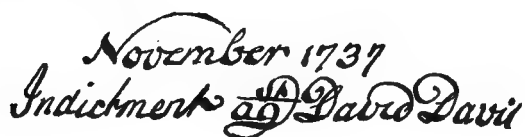 November 1737
Indictment agt David Davis